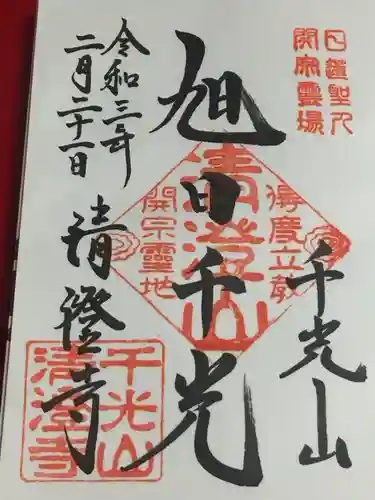 日蓮聖人
開宗霊場
千光山
旭日千光
令和三年
二月二十一日
清澄寺
得度立教
清澄山
開宗靈地
千光山
清澄寺